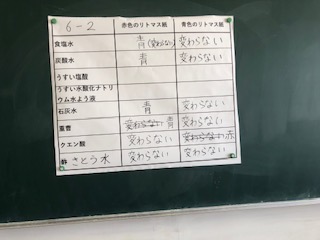 6-2 赤色のリトマス紙 青色のリトマス紙
食塩水 青(変わらない) 変わらない
炭酸水 青 変わらない
うすい塩酸
うすい水酸化ナトリ
ウム水よう液
石灰水 青 変わらない
重曹 変わらない 青 変わらない
クエン酸 変わらない 変わらない 赤
さとう水 変わらない 変わらない